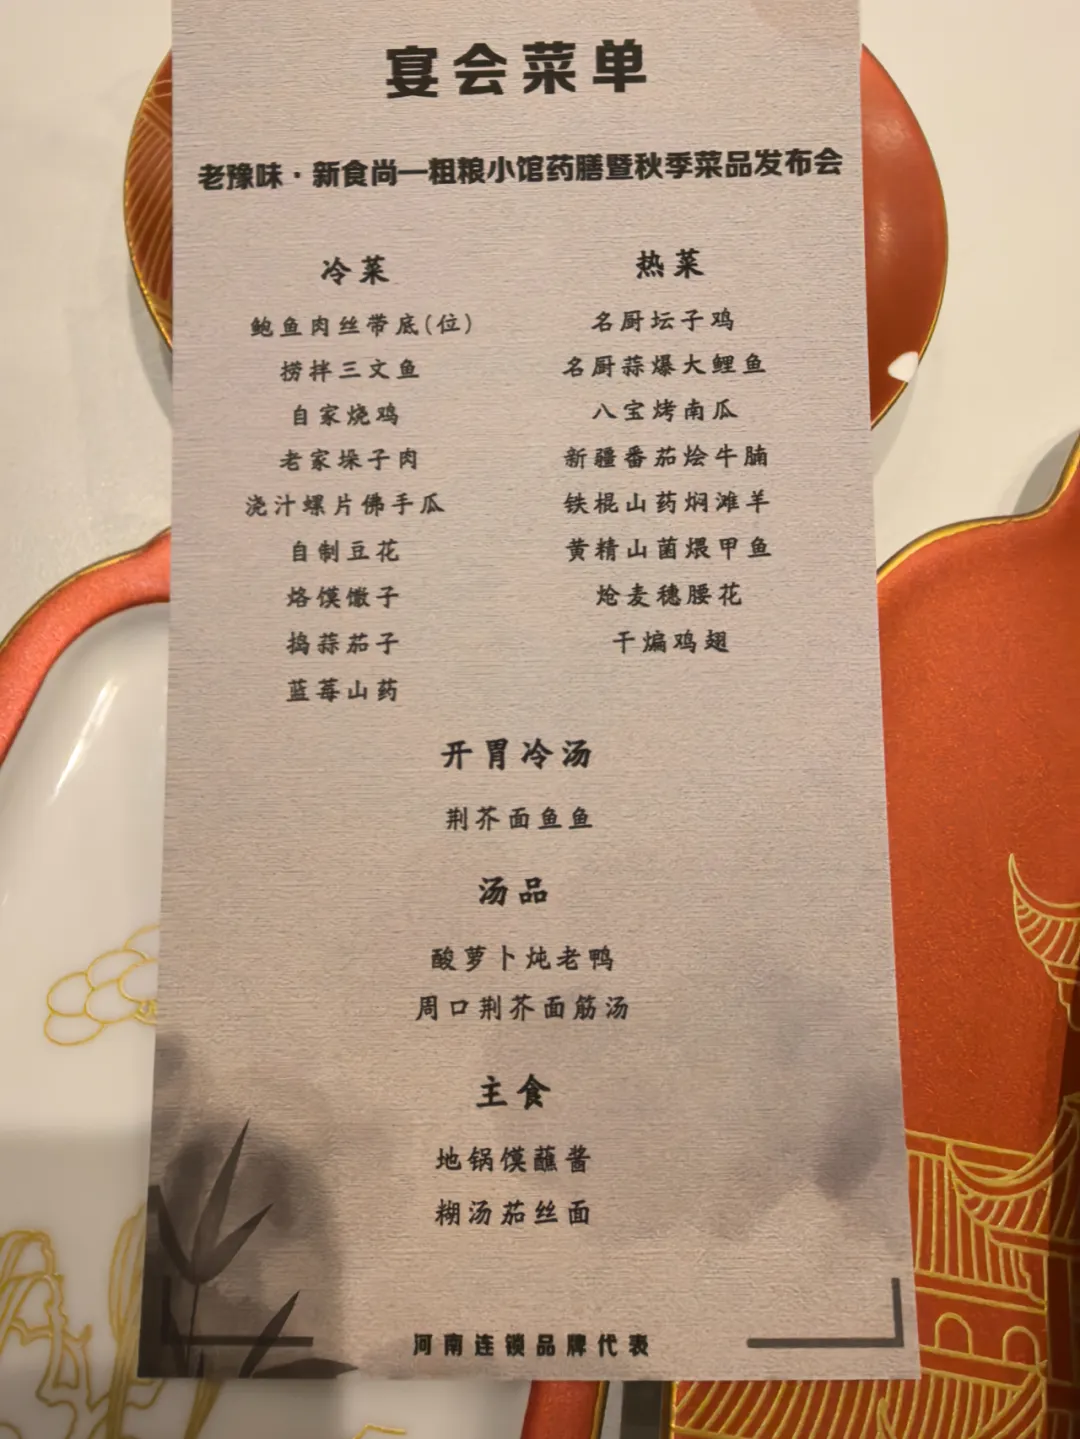 宴会菜单
老豫味·新食尚—粗粮小馆药膳暨秋季菜品发布会
冷菜
鲍鱼肉丝带底(位)
捞拌三文鱼
自家烧鸡
老家垛子肉
浇汁螺片佛手瓜
自制豆花
烙馍馓子
捣蒜茄子
蓝莓山药
热菜
名厨坛子鸡
名厨蒜爆大鲤鱼
八宝烤南瓜
新疆番茄烩牛腩
铁棍山药焖滩羊
黄精山菌煨甲鱼
炝麦穗腰花
干煸鸡翅
开胃冷汤
荆芥面鱼鱼
汤品
酸萝卜炖老鸭
周口荆芥面筋汤
主食
地锅馍蘸酱
糊汤茄丝面
河南连锁品牌代表